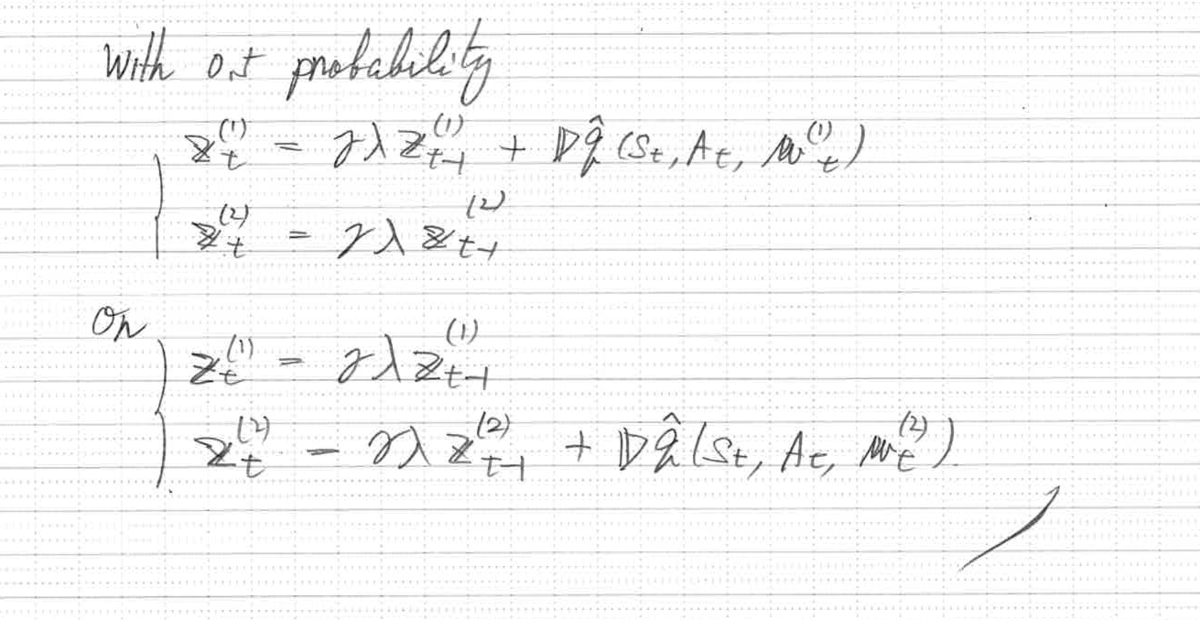 With 0.5 probability
𝕫ₜ⁽¹⁾ = γλ 𝕫ₜ₋₁⁽¹⁾ + ∇q̂ (Sₜ, Aₜ, 𝕨ₜ⁽¹⁾)
𝕫ₜ⁽²⁾ = γλ 𝕫ₜ₋₁⁽²⁾
Or
𝕫ₜ⁽¹⁾ = γλ 𝕫ₜ₋₁⁽¹⁾
𝕫ₜ⁽²⁾ = γλ 𝕫ₜ₋₁⁽²⁾ + ∇q̂ (Sₜ, Aₜ, 𝕨ₜ⁽²⁾).